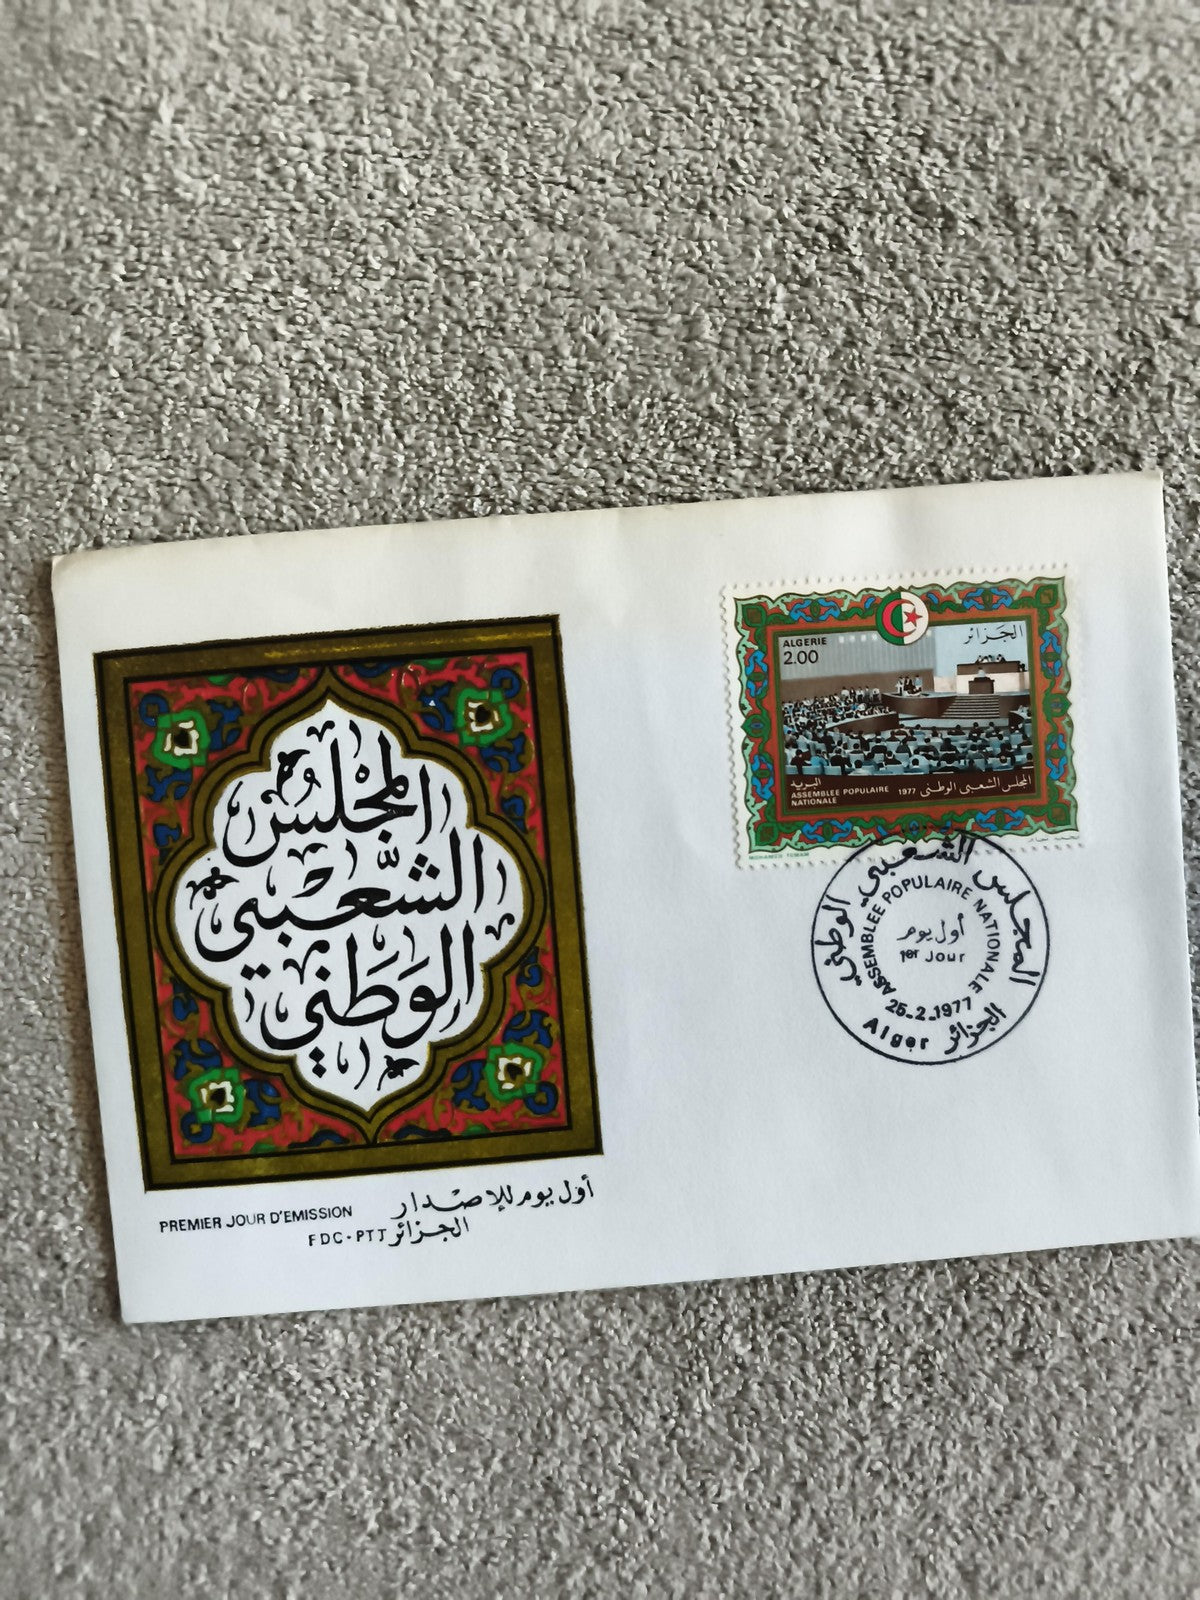 المجْلسُ
الشَّعبي
الوَطَني
PREMIER JOUR D'EMISSION
أول يوم للإصدار
FDC-PTT الجزائر
ALGERIE
2.00
الجزائر
البريد
ASSEMBLEE POPULAIRE
NATIONALE
1977
المجلس الشعبي الوطني
MOHAMED TEMAM
محمد تمام
المجلس الشعبي الوطني
ASSEMBLEE POPULAIRE NATIONALE
أول يوم
1er Jour
25-2-1977
Alger الجزائر